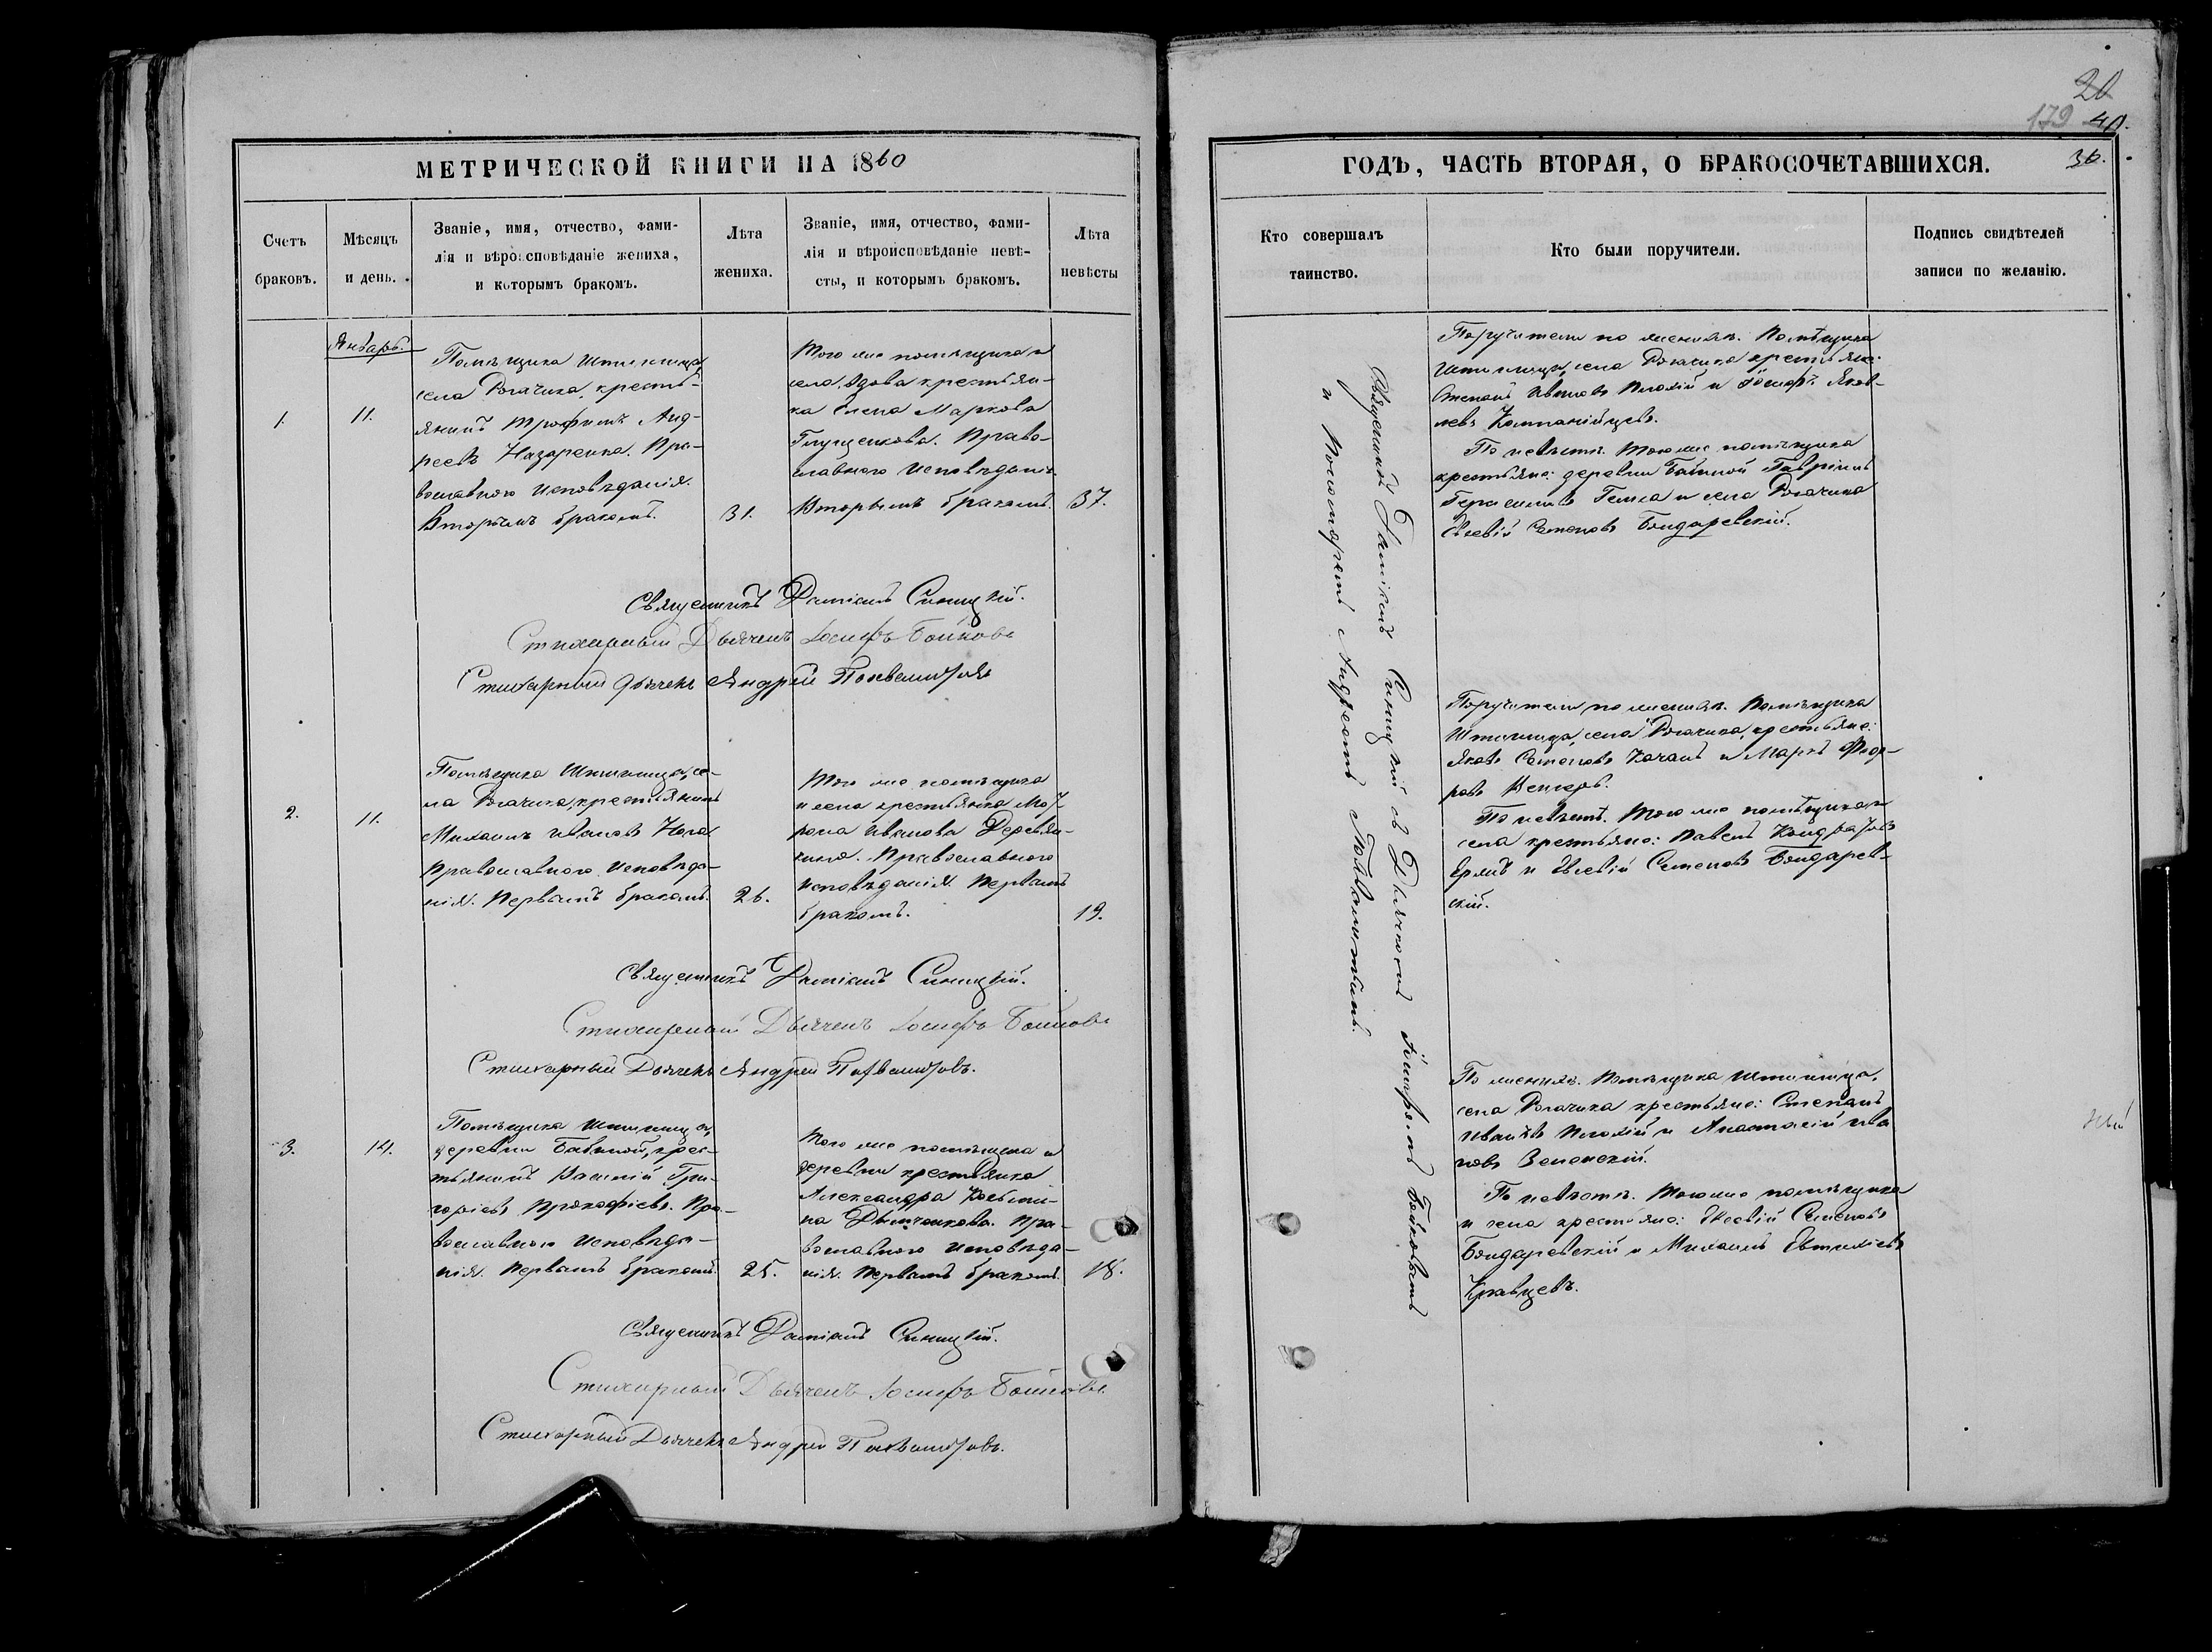 МЕТРИЧЕСКОЙ КНИГИ НА 1860
Счетъ браковъ.
Мѣсяцъ и день.
Званіе, имя, отчество, фами-
лія и вѣроисповѣданіе жениха,
и которымъ бракомъ.
Лѣта
жениха.
Званіе, имя, отчество, фами-
лія и вѣроисповѣданіе невѣ-
сты, и которымъ бракомъ.
Лѣта
невѣсты
Январь.
1.
11.
Помѣщика
села Рогачика, кресть-
янинъ Трофимъ Анд-
реевъ Назаренко. Пра-
вославного исповѣданія.
Вторымъ бракомъ.
31.
Того же помѣщика и
села, вдова крестьян-
ка Елена Маркова
Глущенкова. Право-
славного исповѣданія.
Вторымъ бракомъ.
37.
Священникъ Даміанъ Синицкій.
Стихарный Дьячекъ Іосифъ Бойковъ
Стихарный дьячекъ Андрей
2.
11.
Помѣщика се-
ла Рогачика, крестьянинъ
Михаилъ Ивановъ
Православного исповѣда-
нія. Первымъ бракомъ.
26.
Того же помѣщика
и села крестьянка
Иванова Деревян-
Православного
исповѣданія. Первымъ
бракомъ.
19.
Священникъ Даміанъ Синицкій.
Стихарный Дьячекъ Іосифъ Бойковъ
Стихарный Дьячекъ Андрей
3.
14.
Помѣщика
деревни крес-
тьянинъ Григ-
орьевъ Прокофіевъ. Пра-
вославного исповѣда-
нія. Первымъ бракомъ.
25.
Того же помѣщика и
деревни крестьянка
Александра Косьми-
на Пра-
вославного исповѣда-
нія. Первымъ бракомъ.
18.
Священникъ Даміанъ Синицкій.
Стихарный Дьячекъ Іосифъ Бойковъ
Стихарный Дьячекъ Андрей
20
179
36.
ГОДЪ, ЧАСТЬ ВТОРАЯ, О БРАКОСОЧЕТАВШИХСЯ.
Кто совершалъ
таинство.
Кто были поручители.
Подпись свидѣтелей
записи по желанію.
Священникъ Даміанъ Синицкій съ Дьячкомъ Іосифомъ Бойковымъ
и Пономаремъ Андреемъ
Поручители по женихѣ. Помѣщика
села Рогачика крестьяне:
Степанъ Ивановъ и Іосифъ Яков-
левъ Компанійцевъ.
По невѣстѣ. Того же помѣщика
крестьяне: деревни Гавріилъ
Герасимовъ и села Рогачика
Евсевій Семеновъ Бондаревскій.
Поручители по женихѣ. Помѣщика
села Рогачика, крестьяне:
Яковъ Семеновъ Качанъ и Маркъ Федо-
ровъ
По невѣстѣ. Того же помѣщика и
села крестьяне: Павелъ Кондратовъ
и Евсевій Семеновъ Бондарев-
скій.
По женихѣ. Помѣщика
села Рогачика крестьяне: Степанъ
Ивановъ и Анастасій Ива-
новъ
По невѣстѣ. Того же помѣщика
и села крестьяне: Евсевій Семеновъ
Бондаревскій и Михаилъ Евтихіевъ
Кравцевъ.